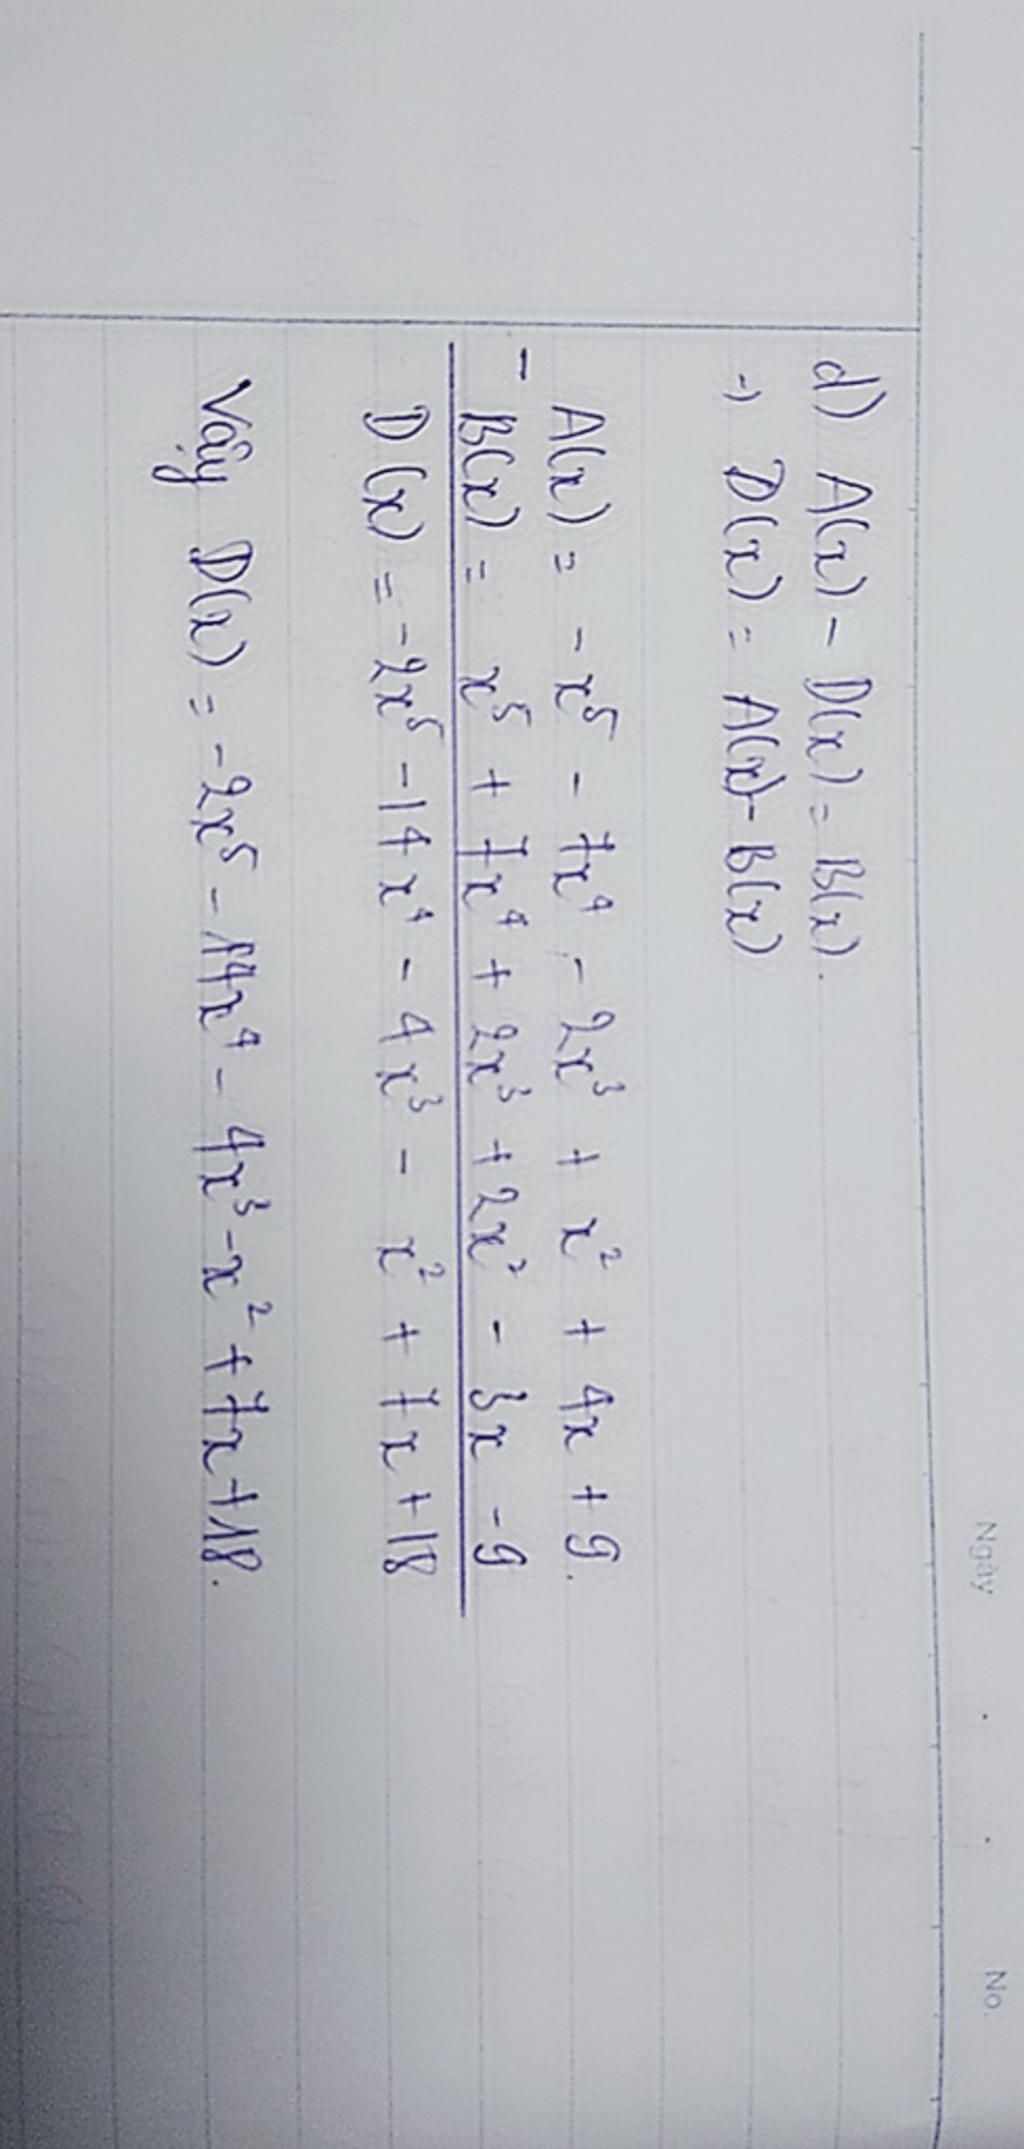 Ngày . . No.
d) A(x) - D(x) = B(x).
→ D(x) = A(x) - B(x)
A(x) = -x⁵ - 7x⁴ - 2x³ + x² + 4x + 9.
-
B(x) = x⁵ + 7x⁴ + 2x³ + 2x² - 3x - 9
D(x) = -2x⁵ - 14x⁴ - 4x³ - x² + 7x + 18
Vậy D(x) = -2x⁵ - 14x⁴ - 4x³ - x² + 7x + 18.